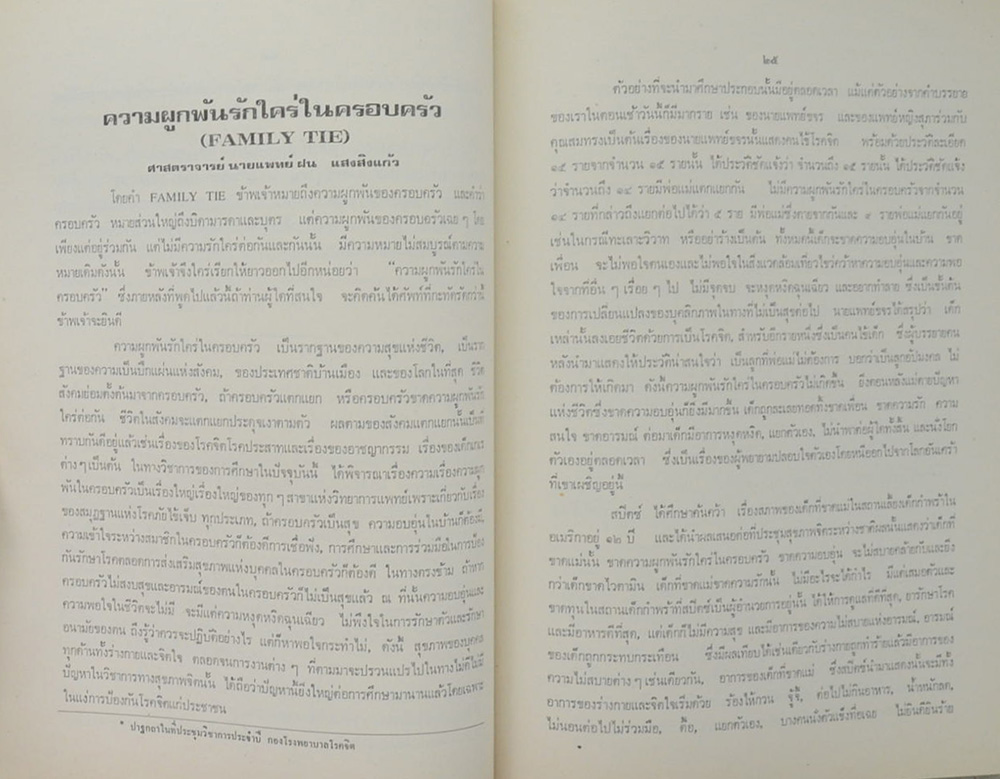 ความผูกพันรักใคร่ในครอบครัว
(FAMILY TIE)
ศาสตราจารย์ นายแพทย์ ฝน แสงสิงแก้ว
โดยคำ FAMILY TIE ข้าพเจ้าหมายถึงความผูกพันของครอบครัว และคำว่า
ครอบครัว หมายส่วนใหญ่ถึงบิดามารดาและบุตร แต่ความผูกพันของครอบครัวเฉย ๆ โดย
เพียงแต่อยู่ร่วมกัน แต่ไม่มีความรักใคร่ต่อกันและกันนั้น มีความหมายไม่สมบูรณ์ตามความ
หมายเดิมดังนั้น ข้าพเจ้าจึงใคร่เรียกให้ยาวออกไปอีกหน่อยว่า "ความผูกพันรักใคร่ใน
ครอบครัว" ซึ่งภายหลังที่พูดไปแล้วนี้ถ้าท่านผู้ใดที่สนใจ จะคิดค้นได้ศัพท์ที่กะทัดรัดกว่านี้
ข้าพเจ้าจะยินดี
ความผูกพันรักใคร่ในครอบครัว เป็นรากฐานของความสุขแห่งชีวิต, เป็นราก
ฐานของความเป็นปึกแผ่นแห่งสังคม, ของประเทศชาติบ้านเมือง และของโลกในที่สุด ชีวิต
สังคมย่อมตั้งต้นมาจากครอบครัว, ถ้าครอบครัวแตกแยก หรือครอบครัวขาดความผูกพันรัก
ใคร่ต่อกัน ชีวิตในสังคมจะแตกแยกประดุจเงาตามตัว ผลตามของสังคมแตกแยกนั้นเป็นที่
ทราบกันดีอยู่แล้วเช่นเรื่องของโรคจิตโรคประสาทและเรื่องของอาชญากรรม เรื่องของเด็กเกเร
ต่างๆเป็นต้น ในทางวิชาการของการศึกษาในปัจจุบันนี้ ได้พิจารณาเรื่องความเรื่องความผูก
พันในครอบครัวเป็นเรื่องใหญ่เรื่องใหญ่ของทุก ๆ สาขาแห่งวิทยาการแพทย์เพราะเกี่ยวกับเรื่อง
ของสมุฏฐานแห่งโรคภัยไข้เจ็บ ทุกประเภท, ถ้าครอบครัวเป็นสุข ความอบอุ่นในบ้านก็ต้องมี
ความเข้าใจระหว่างสมาชิกในครอบครัวก็ต้องดีการเชื่อฟัง, การศึกษาและการร่วมมือในการป้อง
กันรักษาโรคตลอดการส่งเสริมสุขภาพแห่งบุคคลในครอบครัวก็ต้องดี ในทางตรงข้าม ถ้าหาก
ครอบครัวไม่สงบสุขและอารมณ์ของคนในครอบครัวก็ไม่เป็นสุขแล้ว ณ ที่นั้นความอบอุ่นและ
ความพอใจในชีวิตจะไม่มี จะมีแต่ความหงุดหงิดฉุนเฉียว ไม่พึงใจในการรักษาตัวและรักษา
อนามัยของตน ถึงรู้ว่าควรจะปฏิบัติอย่างไร แต่ก็หาพอใจกระทำไม่, ดังนี้ สุขภาพของบุคคล
ทุกด้านทั้งร่างกายและจิตใจ ตลอดจนการงานต่าง ๆ ที่ตามมาจะปรวนแปรไปในทางไม่ดีไม่มี
ปัญหาในวิชาการทางสุขภาพจิตนั้น ได้ถือว่าปัญหานี้ยิ่งใหญ่ต่อการศึกษามานานแล้วโดยเฉพาะ
ในแง่การป้องกันโรคจิตแก่ประชาชน
* ปาฐกถาในที่ประชุมวิชาการประจำปี กองโรงพยาบาลโรคจิต
๒๕
ตัวอย่างที่จะนำมาศึกษาประกอบนั้นมีอยู่ตลอดเวลา แม้แต่ตัวอย่างจากคำบรรยาย
ของเราในตอนเช้าวันนี้ก็มีมากราย เช่น ของนายแพทย์ขจร และของแพทย์หญิงสุภาร่วมกับ
คุณสมทรงเป็นต้นเรื่องของนายแพทย์ขจรนั้นแสดงคนไข้โรคจิต พร้อมด้วยประวัติละเอียด
๑๕ รายจากจำนวน ๑๕ รายนั้น ได้ประวัติชัดแจ้งว่า จำนวนถึง ๑๕ รายนั้น ได้ประวัติชัดแจ้ง
ว่าจำนวนถึง ๑๔ รายมีพ่อแม่แตกแยกกัน ไม่มีความผูกพันรักใคร่ในครอบครัวจากจำนวน
๑๔ รายที่กล่าวถึงแยกต่อไปได้ว่า ๕ ราย มีพ่อแม่ซึ่งตายจากกันและ ๙ รายพ่อแม่แยกกันอยู่
เช่นในกรณีทะเลาะวิวาท หรืออย่าร้างเป็นต้น ทั้งหมดนี้เด็กจะขาดความอบอุ่นในบ้าน ขาด
เพื่อน จะไม่พอใจตนเองและไม่พอใจในสิ่งแวดล้อมเที่ยวไขว่คว้าหาความอบอุ่นและความพอ
ใจจากที่อื่น ๆ เรื่อย ๆ ไป ไม่มีจุดจบ จะหงุดหงิดฉุนเฉียว และอยากทำลาย ซึ่งเป็นขั้นต้น
ของการเปลี่ยนแปลงของบุคลิกภาพในทางที่ไม่เป็นสุขต่อไป นายแพทย์ขจรได้สรุปว่า เด็ก
เหล่านั้นลงเอยชีวิตด้วยการเป็นโรคจิต, สำหรับอีกรายหนึ่งซึ่งเป็นคนไข้เด็ก ซึ่งผู้บรรยายคน
หลังนำมาแสดงให้ประวัติน่าสนใจว่า เป็นลูกที่พ่อแม่ไม่ต้องการ บอกว่าเป็นลูกอัปมงคล ไม่
ต้องการให้เกิดมา ดังนี้ความผูกพันรักใคร่ในครอบครัวไม่เกิดขึ้น ยิ่งตอนหลังแม่ตายปัญหา
แห่งชีวิตซึ่งขาดความอบอุ่นก็ยิ่งมีมากขึ้น เด็กถูกละเลยทอดทิ้งขาดเพื่อน ขาดความรัก ความ
สนใจ ขาดอารมณ์ ต่อมาเด็กมีอาการหงุดหงิด, แยกตัวเอง, ไม่นำพาต่อผู้ใดทั้งสิ้น และนั่งโยก
ตัวเองอยู่ตลอดเวลา ซึ่งเป็นเรื่องของผู้พยายามปลอบใจตัวเองโดยหนีออกไปจากโลกอันเศร้า
ที่เขาเผชิญอยู่นี้
สปิตซ์ ได้ศึกษาค้นคว้า เรื่องสภาพของเด็กที่ขาดแม่ในสถานเลี้ยงเด็กกำพร้าใน
อเมริกาอยู่ ๑๒ ปี และได้นำผลเสนอต่อที่ประชุมสุขภาพจิตระหว่างชาติผลนั้นแสดงว่าเด็กที่
ขาดแม่นั้น ขาดความผูกพันรักใคร่ในครอบครัว ขาดความอบอุ่น จะไม่สบายคล้ายกับและยิ่ง
กว่าเด็กขาดไวตามิน เด็กที่ขาดแม่ขาดความรักนั้น ไม่มีอะไรจะได้กำไร มีแต่เสมอตัวและ
ขาดทุนในสถานเด็กกำพร้าที่สปิตซ์เป็นผู้อำนวยการอยู่นั้น ได้ให้การดูแลที่ดีที่สุด, อารักษาโรค
และมีอาหารดีที่สุด, แต่เด็กก็ไม่มีความสุข และมีอาการของความไม่สบายแห่งอารมณ์, อารมณ์
ของเด็กถูกกระทบกระเทือน ซึ่งมีผลเทียบได้เช่นเดียวกับร่างกายถูกทำร้ายแล้วมีอาการของ
ความไม่สบายต่าง ๆ เช่นเดียวกัน, อาการของเด็กที่ขาดแม่ ซึ่งสปิตซ์นำมาแสดงนั้นจะมีทั้ง
อาการของร่างกายและจิตใจเริ่มด้วย ร้องไห้กวน จู้จี้, ต่อไปไม่กินอาหาร, น้ำหนักลด,
ไม่นอนต่อไปไม่ร่วมมือ, ดื้อ, แยกตัวเอง, บางคนนั่งตัวแข็งทื่อเฉย ไม่ยินดียินร้าย